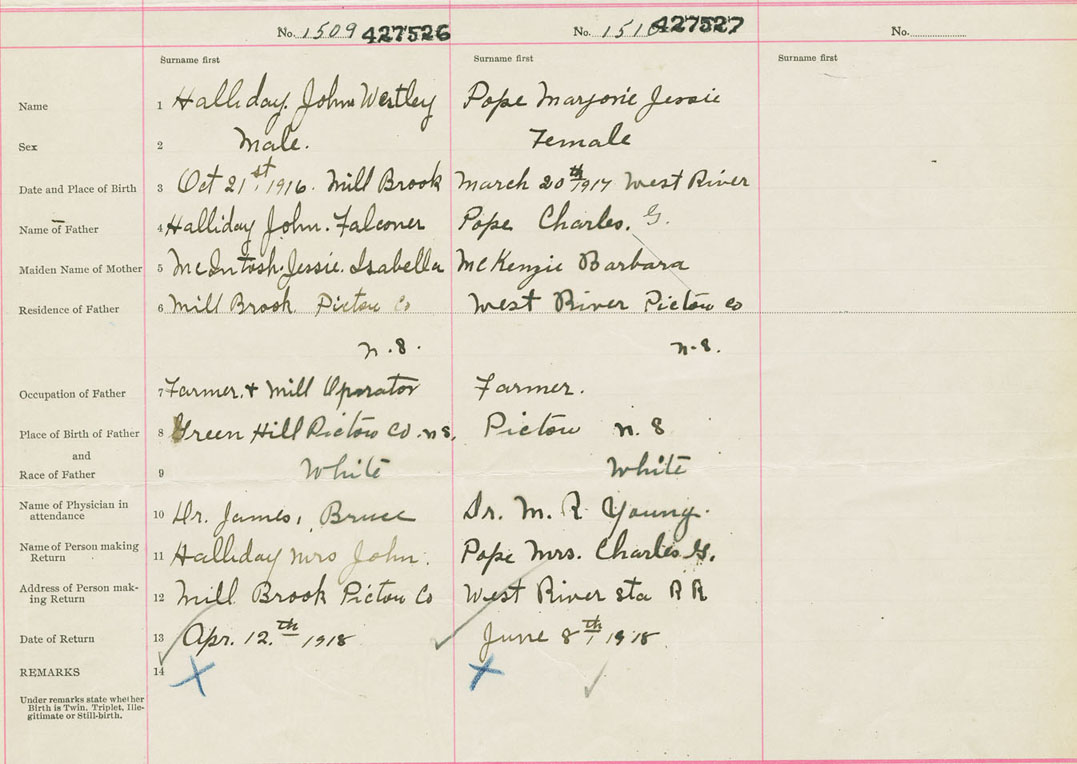 No. 1509 427526 No. 1510 427527 No.
Surname first Surname first Surname first
Name 1 Halliday. John Westley Pope Marjorie Jessie
Sex 2 Male. Female
Date and Place of Birth 3 Oct 21st, 1916. Mill Brook March 20th 1917 West River
Name of Father 4 Halliday John. Falconer Pope Charles. G.
Maiden Name of Mother 5 McIntosh. Jessie. Isabella McKenzie Barbara
Residence of Father 6 Mill Brook Pictou Co West River Pictou Co
N.S. N.S.
Occupation of Father 7 Farmer. & Mill Operator Farmer.
Place of Birth of Father 8 Green Hill Pictou Co. N S. Pictou N. S
and
Race of Father 9 White White
Name of Physician in
attendance 10 Dr. James, Bruce Dr. M. R. Young.
Name of Person making
Return 11 Halliday Mrs John. Pope Mrs. Charles G.
Address of Person mak-
ing Return 12 Mill Brook Pictou Co West River Sta R R
Date of Return 13 Apr. 12.th 1918 June 8th 1918
REMARKS 14 X X
Under remarks state whether
Birth is Twin, Triplet, Ille-
gitimate or Still-birth.